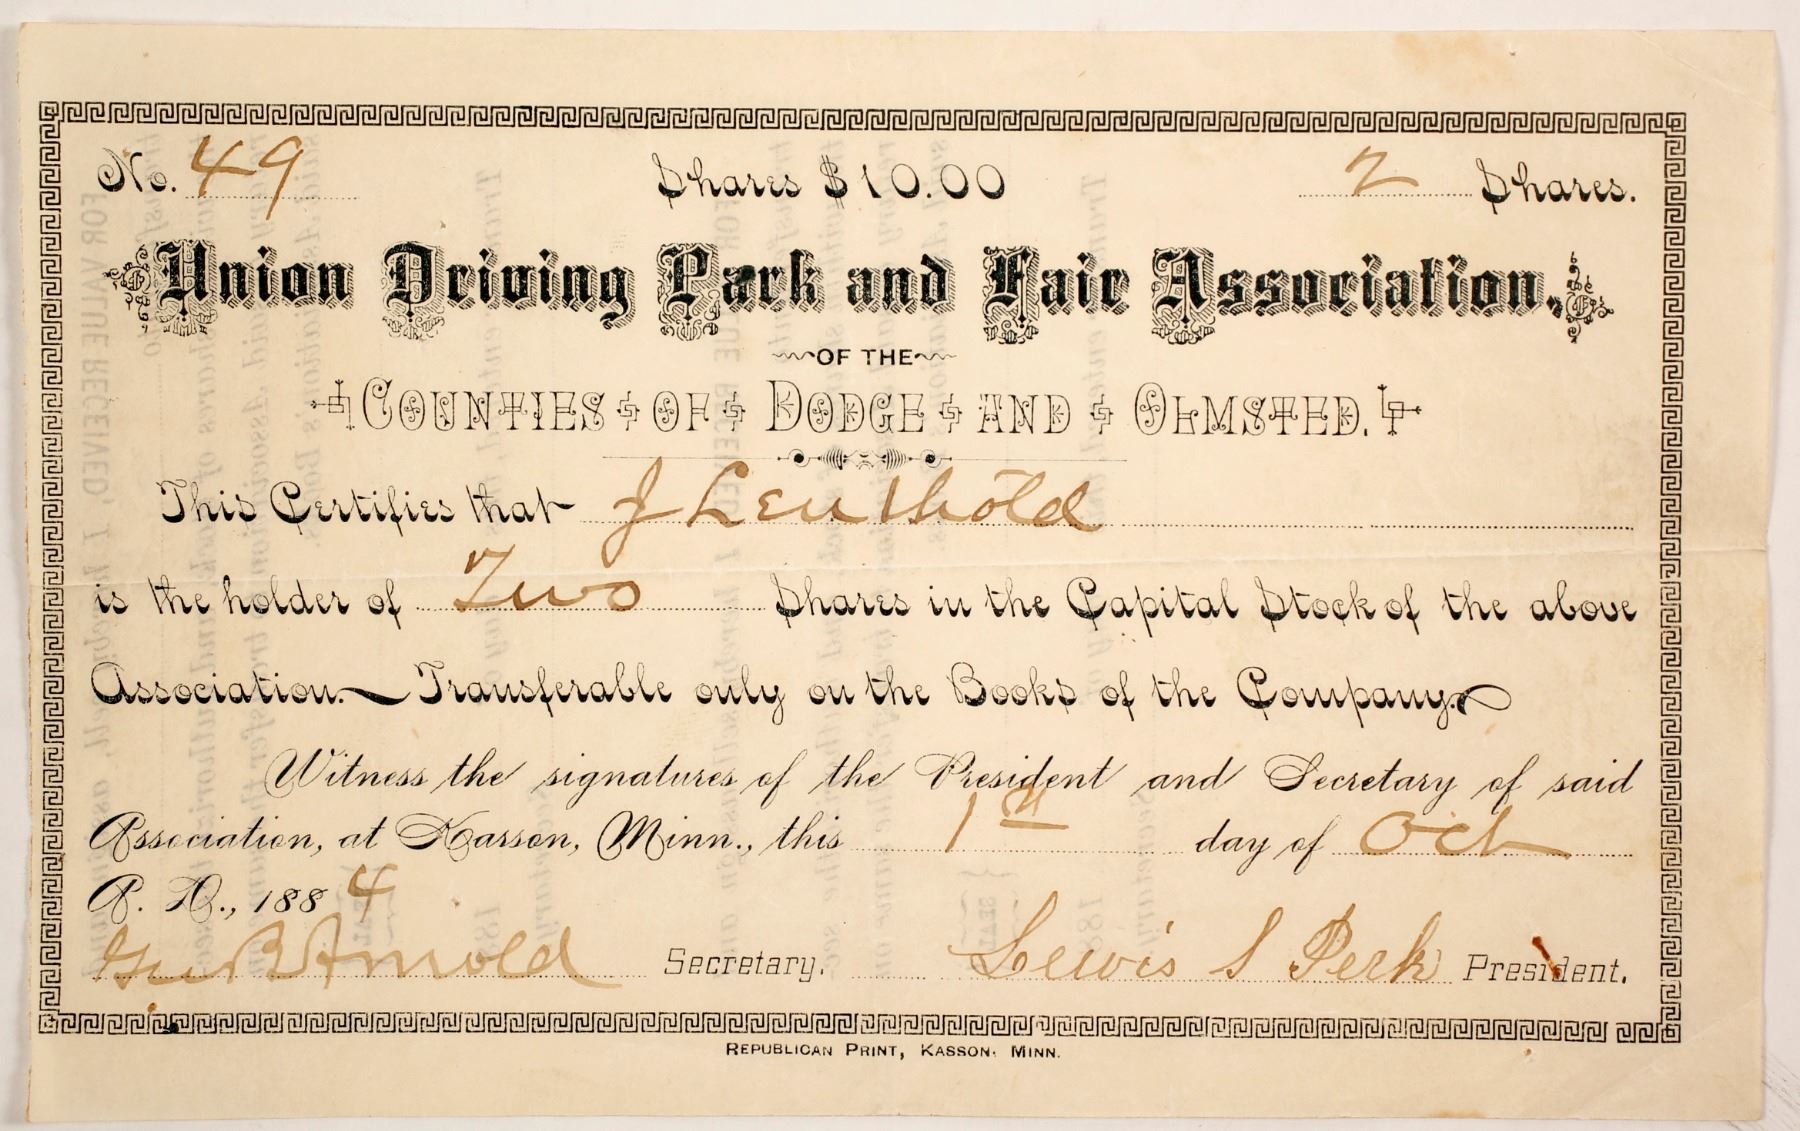 No. 49 Shares $10.00 2 Shares.
Union Driving Park and Fair Association.
OF THE
COUNTIES OF DODGE AND OLMSTED.
This Certifies that J Leuthold
is the holder of Two Shares in the Capital Stock of the above
Association. Transferable only on the Books of the Company.
Witness the signatures of the President and Secretary of said
Association, at Kasson, Minn., this 1st day of Oct
A. D., 1884
Geo B Arnold Secretary. Lewis S Perk President.
REPUBLICAN PRINT, KASSON, MINN.